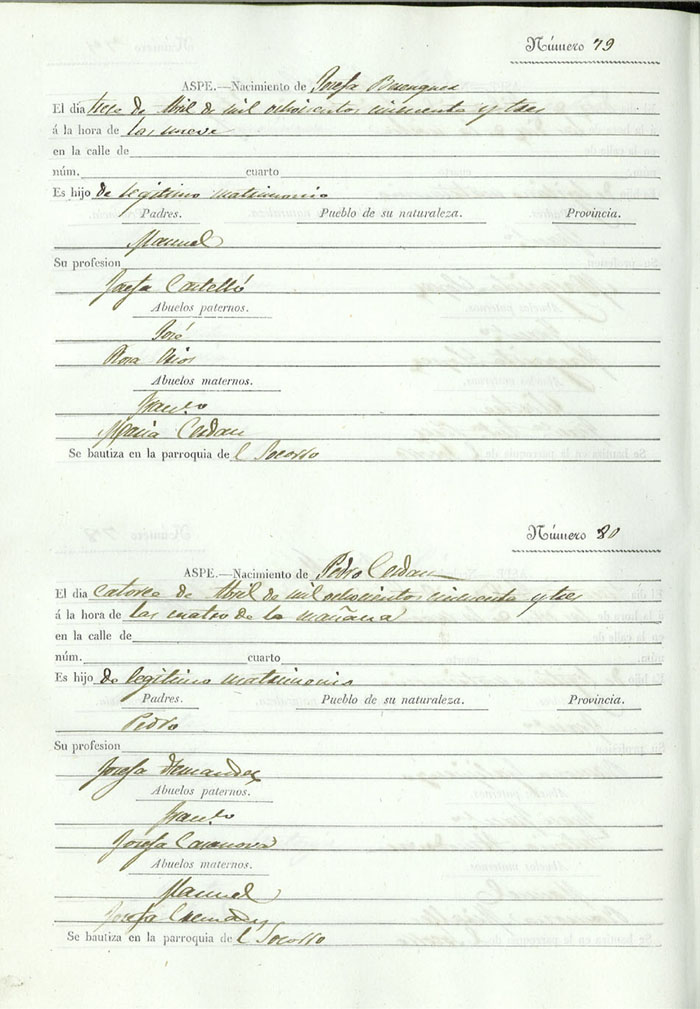 Número 79
ASPE.—Nacimiento de Josefa
El día trece de Abril de mil ochocientos cincuenta y tres
á la hora de las nueve
en la calle de
núm. cuarto
Es hijo de legitimo matrimonio
Padres. Pueblo de su naturaleza. Provincia.
Manuel
Su profesion
Josefa Castelló
Abuelos paternos.
José
Rosa
Abuelos maternos.
Franco
Maria Cerdan
Se bautiza en la parroquia de l Socorro
Número 80
ASPE.—Nacimiento de Pedro Cerdan
El día catorce de Abril de mil ochocientos cincuenta y tres
á la hora de las cuatro de la mañana
en la calle de
núm. cuarto
Es hijo de legitimo matrimonio
Padres. Pueblo de su naturaleza. Provincia.
Pedro
Su profesion
Josefa
Abuelos paternos.
Franco
Josefa Casanova
Abuelos maternos.
Manuel
Josefa
Se bautiza en la parroquia de l Socorro